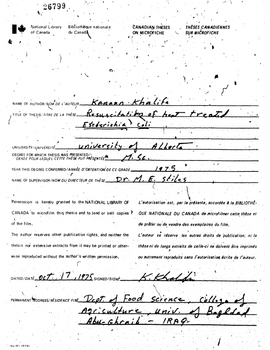 26799
National Library of Canada
Bibliothèque nationale du Canada
CANADIAN THESES ON MICROFICHE
THÈSES CANADIENNES SUR MICROFICHE
NAME OF AUTHOR/NOM DE L'AUTEUR Kanaan Khalifa
TITLE OF THESIS/TITRE DE LA THÈSE Resuscitability of heat treated
Escherichia Coli
UNIVERSITY/UNIVERSITÉ university of Alberta
DEGREE FOR WHICH THESIS WAS PRESENTED/
GRADE POUR LEQUEL CETTE THÈSE FUT PRÉSENTÉE M.Sc.
YEAR THIS DEGREE CONFERRED/ANNÉE D'OBTENTION DE CE GRADE 1975
NAME OF SUPERVISOR/NOM DU DIRECTEUR DE THÈSE Dr. M. E. Stiles
Permission is hereby granted to the NATIONAL LIBRARY OF
CANADA to microfilm this thesis and to lend or sell copies of
the film.
The author reserves other publication rights, and neither the
thesis nor extensive extracts from it may be printed or other-
wise reproduced without the author's written permission.
L'autorisation est, par la présente, accordée à la BIBLIOTHÈ-
QUE NATIONALE DU CANADA de microfilmer cette thèse et
de prêter ou de vendre des exemplaires du film.
L'auteur se réserve les autres droits de publication; ni la
thèse ni de longs extraits de celle-ci ne doivent être imprimés
ou autrement reproduits sans l'autorisation écrite de l'auteur.
DATED/DATÉ oct. 17, 1975 SIGNED/SIGNÉ K. Khalifa
PERMANENT ADDRESS/RÉSIDENCE FIXE Dept. of Food science, college of
Agriculture, univ. of Baghdad
Abu-ghraib - IRAQ